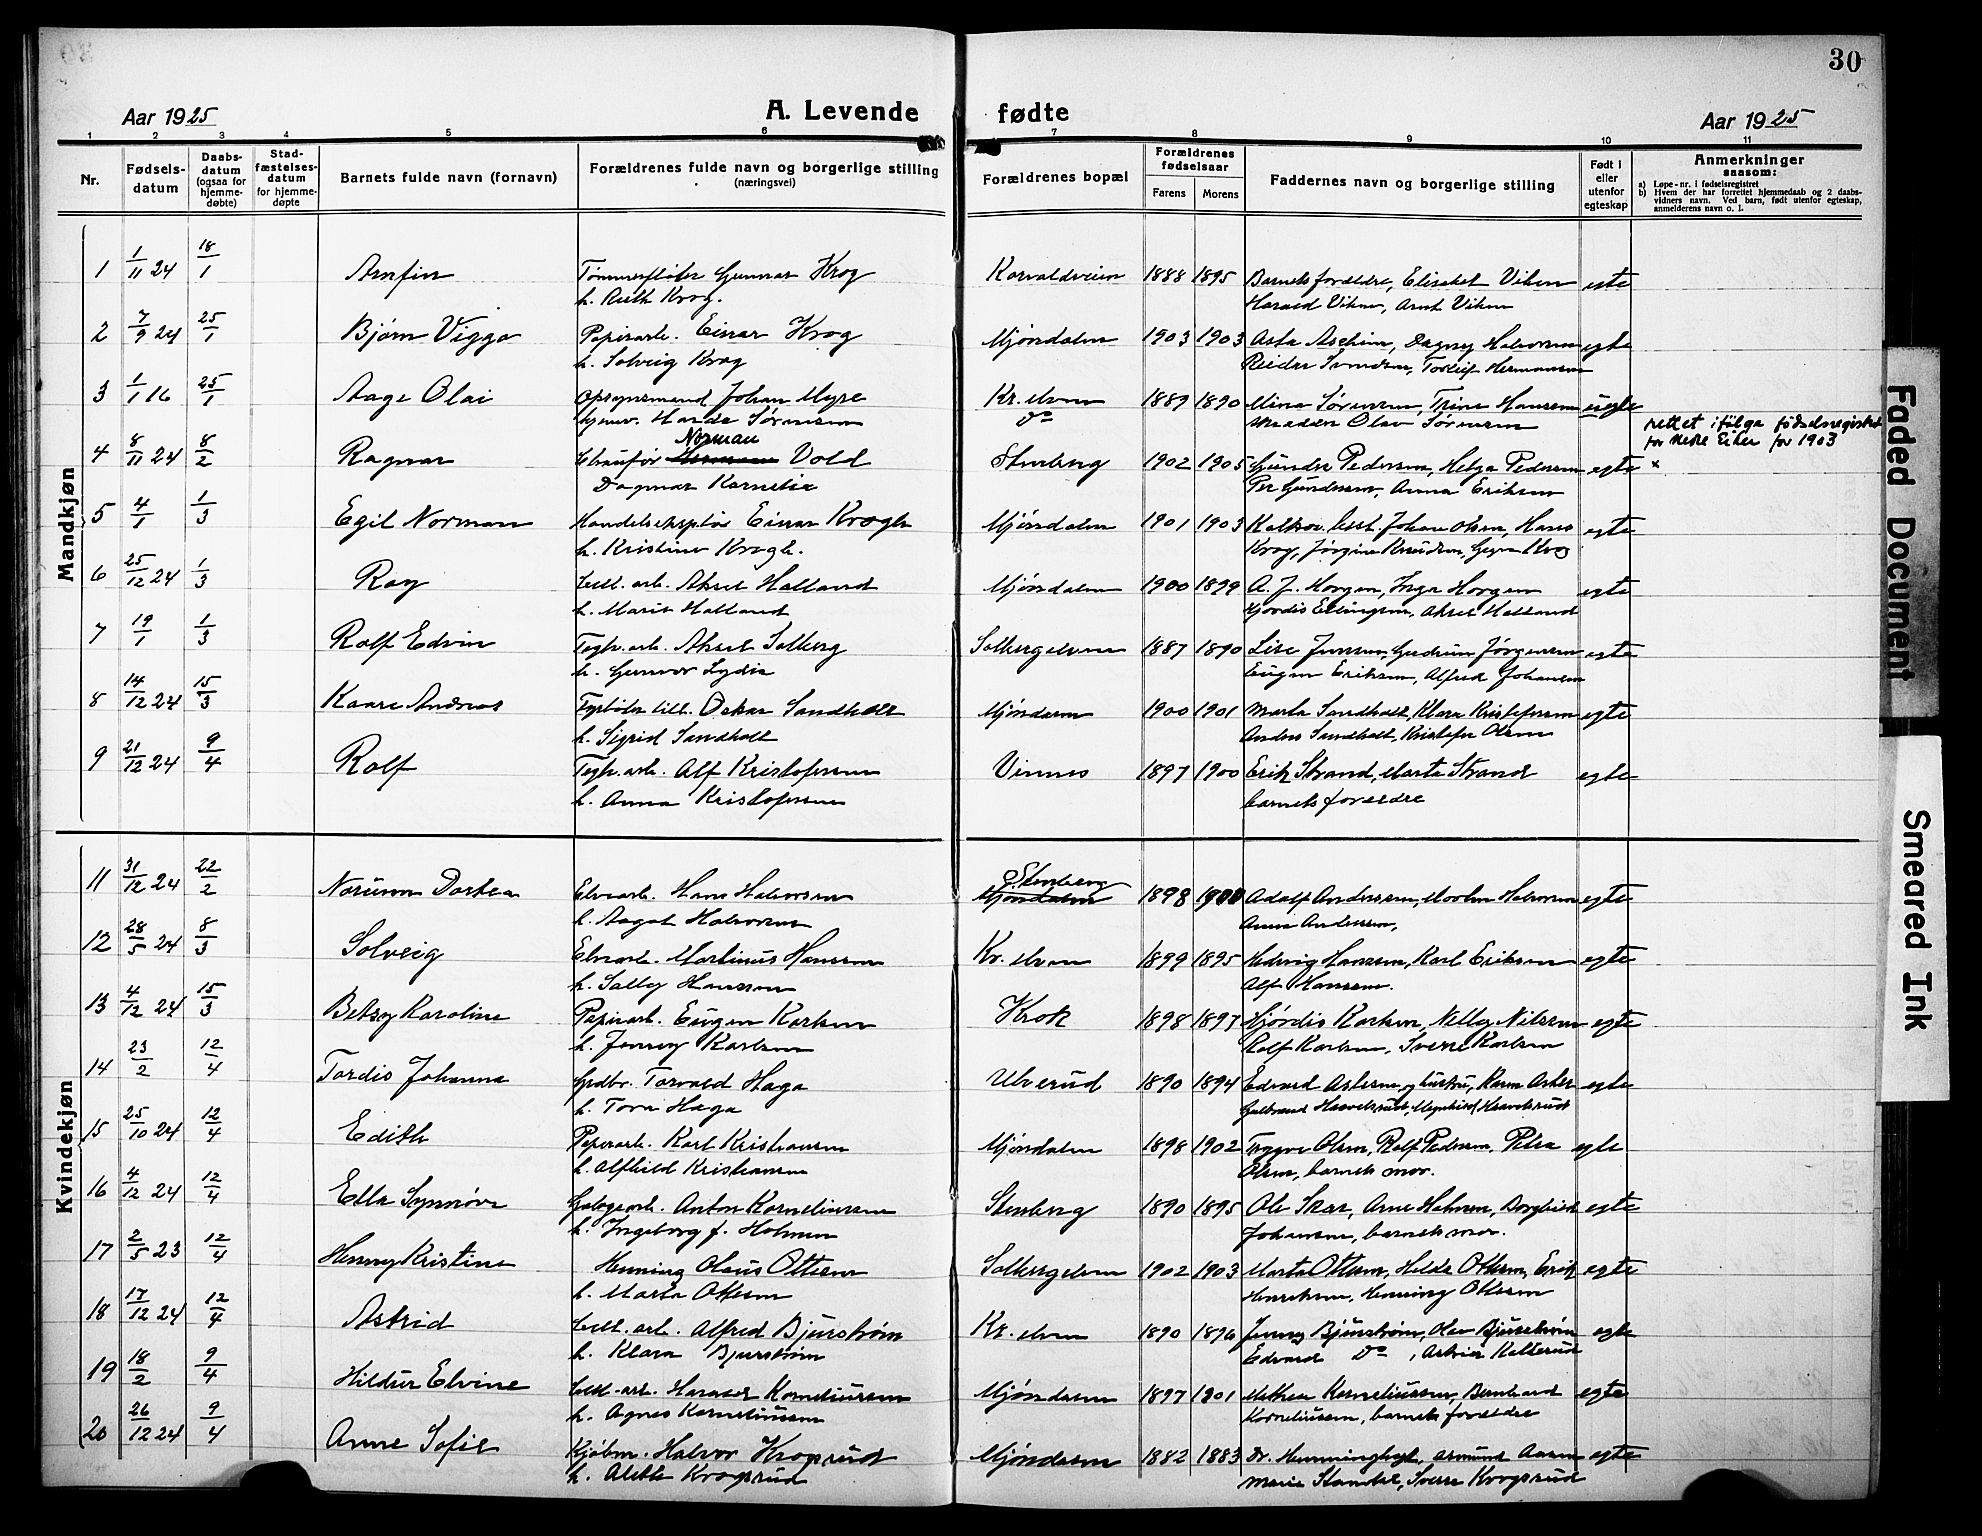 30
Aar 1925
A. Levende fødte
Aar 1925
1 2 3 4 5 6 7 8 9 10 11
Nr.
Fødsels-
datum
Daabs-
datum
(ogsaa for
hjemme-
døbte)
Stad-
fæstelses-
datum
for hjemme-
døpte
Barnets fulde navn (fornavn)
Forældrenes fulde navn og borgerlige stilling
(næringsvei)
Forældrenes bopæl
Forældrenes
fødselsaar
Farens Morens
Faddernes navn og borgerlige stilling
Født i
eller
utenfor
egteskap
Anmerkninger
saasom:
a) Løpe-nr. i fødselsregistret
b) Hvem der har forrettet hjemmedaab og 2 daabs-
vidners navn. Ved barn, født utenfor egteskap,
anmelderens navn o. l.
Mandkjøn
1 1/11 24 18/1 Arnfin Tømmerfløter Gunnar Krog Korvaldveien 1888 1895 Barnets forældre, Elisabet Viken egte
h. Ruth Krog. Harald Viken, Arnt Viken
2 7/9 24 25/1 Bjørn Viggo Papirarb. Einar Krog Mjøndalen 1903 1903 Asta Ascheim, Dagny Halvorsen egte
h. Solveig Krog Reidar Svendsen, Torleif Hermansen
3 1/1 16 25/1 Aage Olai Opsynsmand Johan Myre Kr. elven 1889 1890 Mina Sørensen, Trine Hansen uegte
Sørensen do Olav Sørensen
rettet ifølge fødselsregistret
for Nedre Eiker for 1903
4 8/11 24 8/2 Ragnar Chauffør Norman Vold Stenberg 1902 1905 Gunda Pedersen, Helga Pedersen egte x
Dagmar Kornelia Per Gundersen, Anna Eriksen
5 4/1 1/3 Egil Norman Handelseksped. Einar Krogh Mjøndalen 1901 1903 Johan Olsen, Hans egte
h. Kristine Krogh. Krog, Jørgine Knudsen, Krog
6 25/12 24 1/3 Roy Cell. arb. Aksel Halland Mjøndalen 1900 1899 A. J. Horgen, Inga Horgen egte
h. Marie Halland Hjørdis Ellingsen, Aksel Halland
7 19/1 1/3 Rolf Edvin Teglv. arb. Aksel Solberg Solbergelven 1887 1890 Lise Jensen, Gudrun Jørgensen egte
h. Gunvor Lydia Eugen Eriksen, Alfred Johansen
8 14/12 24 15/3 Kaare Andreas Fyrbøter cell. Oskar Sandholt Mjøndalen 1900 1901 Marta Sandholt, Klara Kristofersen egte
h. Sigrid Sandholt Anders Sandholt, Kristofer Olsen
9 21/12 24 9/4 Rolf Teglv. arb. Alf Kristofersen Vinnes 1897 1900 Erik Strand, Marta Strand egte
h. Anna Kristofersen barnets forældre
Kvindekjøn
11 31/12 24 22/2 Norunn Dortea Elvearb. Hans Halvorsen Stenberg Mjøndalen 1898 1900 Adolf Andersen, Halvorsen egte
h. Aagot Halvorsen Anna Andersen,
12 28/5 24 8/3 Solveig Elvearb. Martinus Hansen Kr. elven 1899 1895 Hedvig Hansen, Karl Eriksen egte
h. Sally Hansen Alf Hansen.
13 4/12 24 15/3 Betsy Karoline Papirarb. Eugen Karlsen Krok 1898 1897 Hjørdis Karlsen, Nelly Nilsen egte
h. Jenny Karlsen Rolf Karlsen, Sverre Karlsen
14 23/2 12/4 Tordis Johanna Grdbr. Torvald Haga Ulverud 1890 1894 Edvard Askersen og hustru, Karen Asker egte
h. Tora Haga Gulbrand Haavelsrud, Haavelsrud
15 25/10 24 12/4 Edith Papirarb. Karl Kristiansen Mjøndalen 1898 1902 Trygve Olsen, Rolf Pedersen, Petra egte
h. Alfhild Kristiansen Olsen, barnets mor.
16 4/12 24 12/4 Ella Synnøve Anton Korneliussen Stenberg 1890 1895 Ole Skar, Arne Holmen, Borghild egte
h. Ingeborg f. Holmen Johansen, barnets mor.
17 2/5 23 12/4 Henny Kristine Henning Olaus Ottesen Solbergelven 1902 1903 Marta Ottesen, Hilda Ottesen, Erik egte
h. Marta Ottesen Henriksen, Henning Ottesen
18 17/12 24 12/4 Astrid Cell. arb. Alfred Bjurstrøm Kr. elven 1890 1896 Jenny Bjurstrøm, Bjurstrøm egte
h. Klara Bjurstrøm Edvard do, Kolterud
19 18/2 9/4 Hildur Elvine Cell. arb. Harald Korneliussen Mjøndalen 1897 1901 Mathea Korneliussen, Bernhard egte
h. Agnes Korneliussen Korneliussen, barnets forældre
20 26/12 24 9/4 Anne Sofie Kjøbm. Halvor Krogsrud Mjøndalen 1882 1883 Dr. Henninghoft, Asmund Aasen egte
h. Aleth Krogsrud Marie Standal, Sverre Krogsrud
Faded Document
Smeared Ink